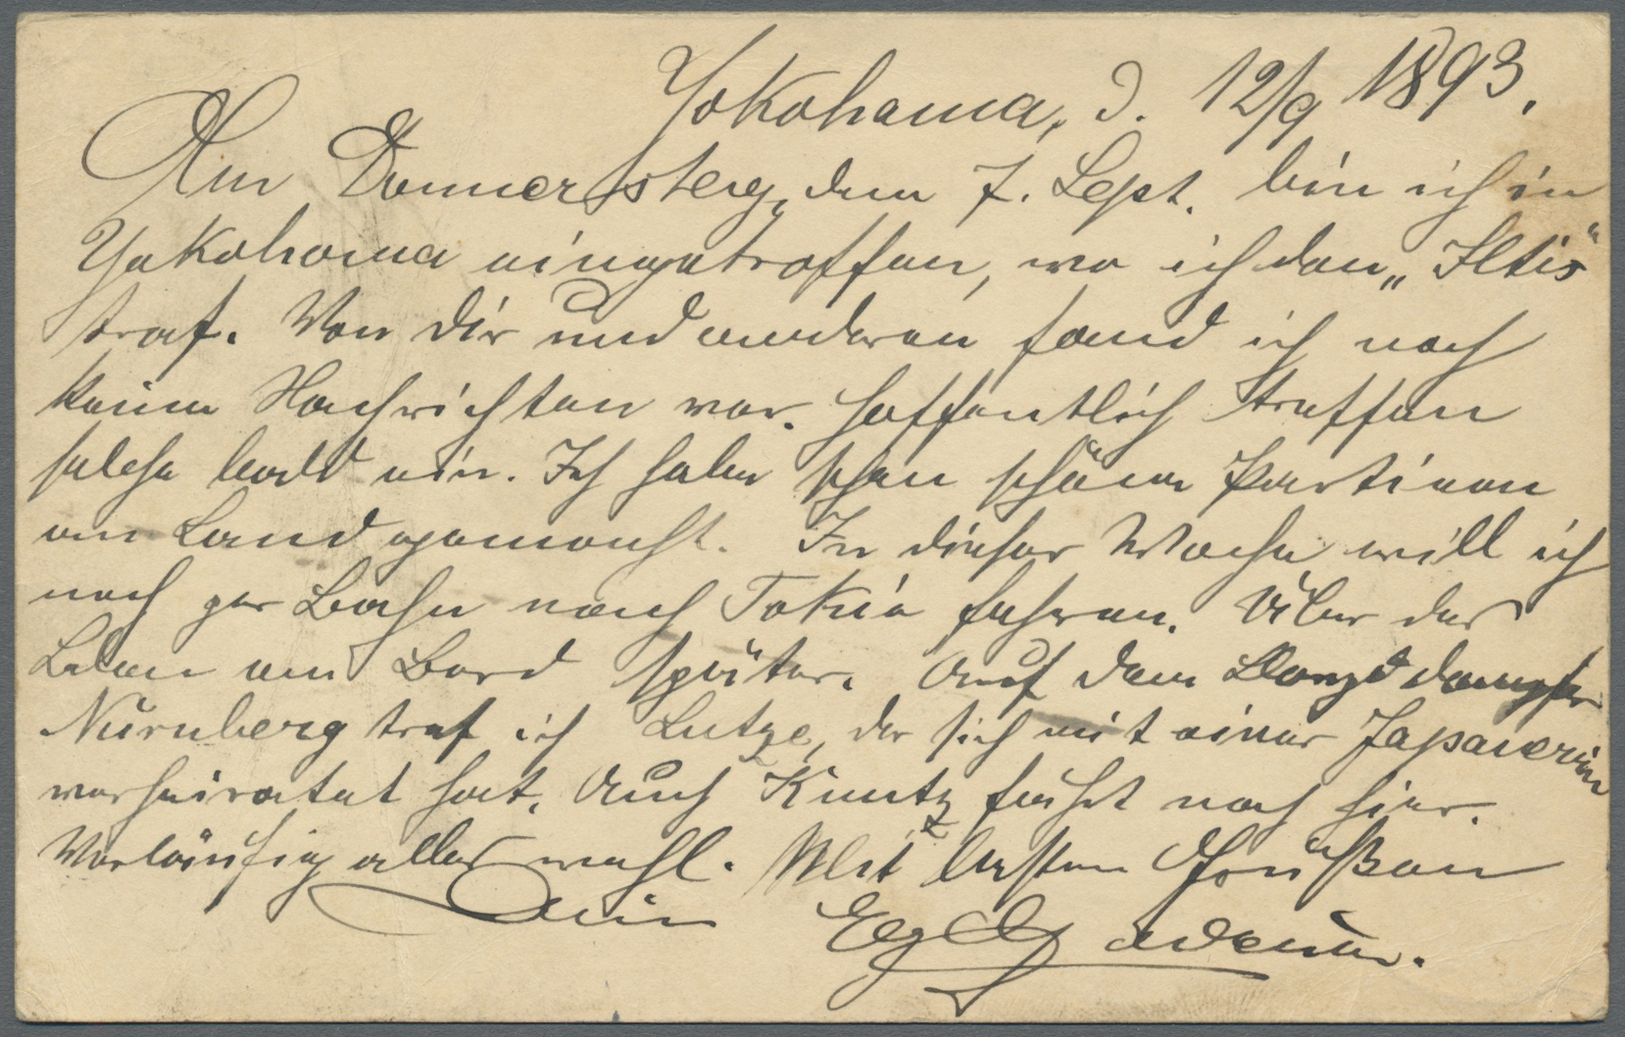 Yokohama, d. 12/9 1893.
Am Donnerstag, dem 7. Sept. bin ich in
Yokohama eingetroffen, wo ich den „Iltis“
traf. Von Dir und anderen fand ich noch
keine Nachrichten vor. Hoffentlich treffen
solche bald ein. Ich habe schon schöne Partieen
an Land gemacht. In dieser Woche will ich
noch per Bahn nach Tokio fahren. Über das
Leben an Bord später. Auf dem Lloyddampfer
Nürnberg traf ich Lutze, der sich mit einer Japanerin
verheiratet hat. Auch Kuntz fährt nach hier.
Vorläufig alles wohl. Mit besten Grüßen
Dein